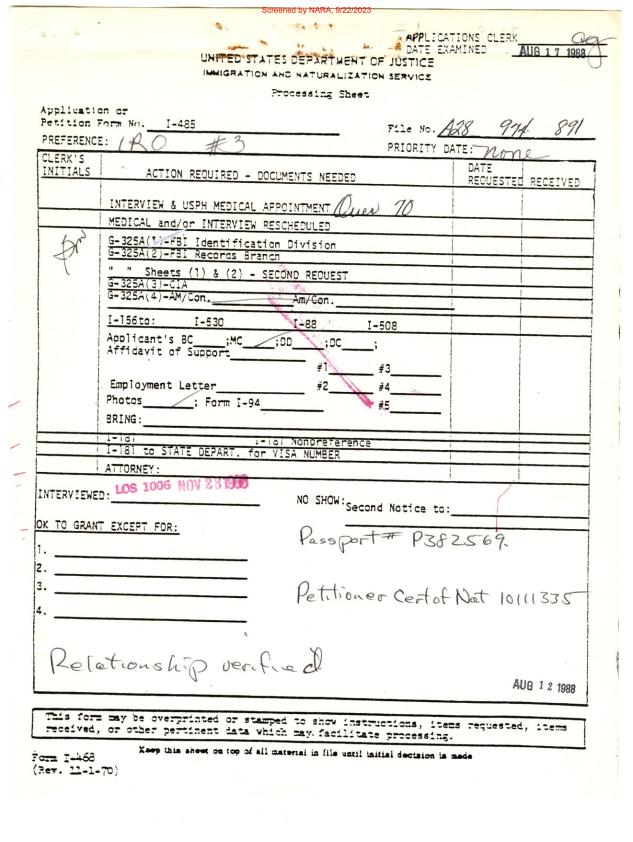 Screened by NARA, 9/22/2023
APPLICATIONS CLERK
DATE EXAMINED AUG 17 1988
UNITED STATES DEPARTMENT OF JUSTICE
IMMIGRATION AND NATURALIZATION SERVICE
Processing Sheet
Application or
Petition Form No. I-485
File No. A28 974 891
PREFERENCE: IRO #3
PRIORITY DATE: none
CLERK'S INITIALS
ACTION REQUIRED - DOCUMENTS NEEDED
DATE
REQUESTED RECEIVED
INTERVIEW & USPH MEDICAL APPOINTMENT Over 70
MEDICAL and/or INTERVIEW RESCHEDULED
G-325A(1)-FBI Identification Division
G-325A(2)-FBI Records Branch
" " Sheets (1) & (2) - SECOND REQUEST
G-325A(3)-CIA
G-325A(4)-AM/Con. Am/Con.
I-156to: I-530 I-88 I-508
Applicant's BC ;MC ;DD ;DC ;
Affidavit of Support
#1 #3
Employment Letter #2 #4
Photos ; Form I-94 #5
BRING:
I-181 I-181 Nonpreference
I-181 to STATE DEPART. for VISA NUMBER
ATTORNEY:
INTERVIEWED: LOS 1006 NOV 28 1988
NO SHOW: Second Notice to:
OK TO GRANT EXCEPT FOR:
Passport # P382569.
1.
2.
3.
Petitioner Cert of Nat 10111335
4.
Relationship verified
AUG 12 1988
This form may be overprinted or stamped to show instructions, items requested, items
received, or other pertinent data which may facilitate processing.
Keep this sheet on top of all material in file until initial decision is made
Form I-468
(Rev. 11-1-70)